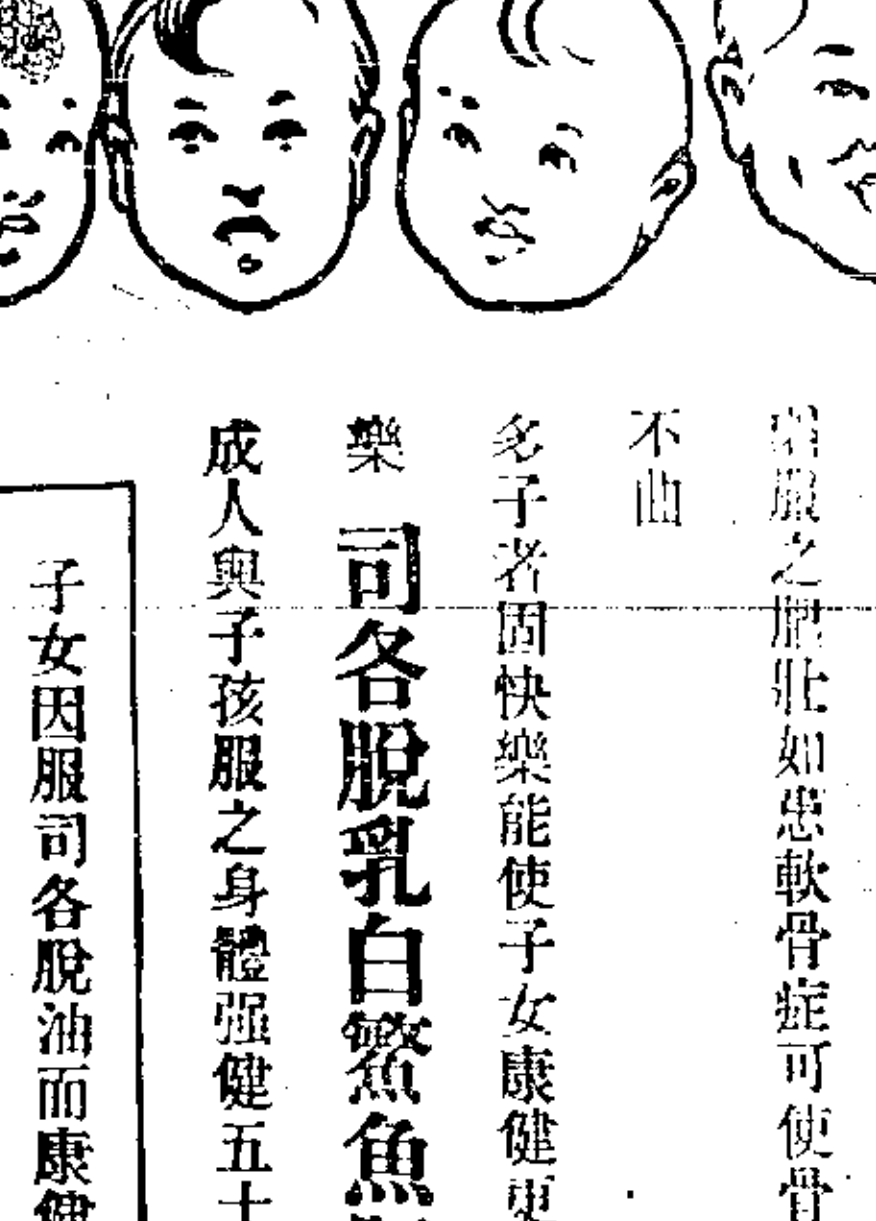 弱服之肥壯如患軟骨症可使骨
不曲
多子者固快樂能使子女康健更
樂 司各脫乳白鰵魚
成人與子孩服之身體强健五十
子女因服司各脫油而康健